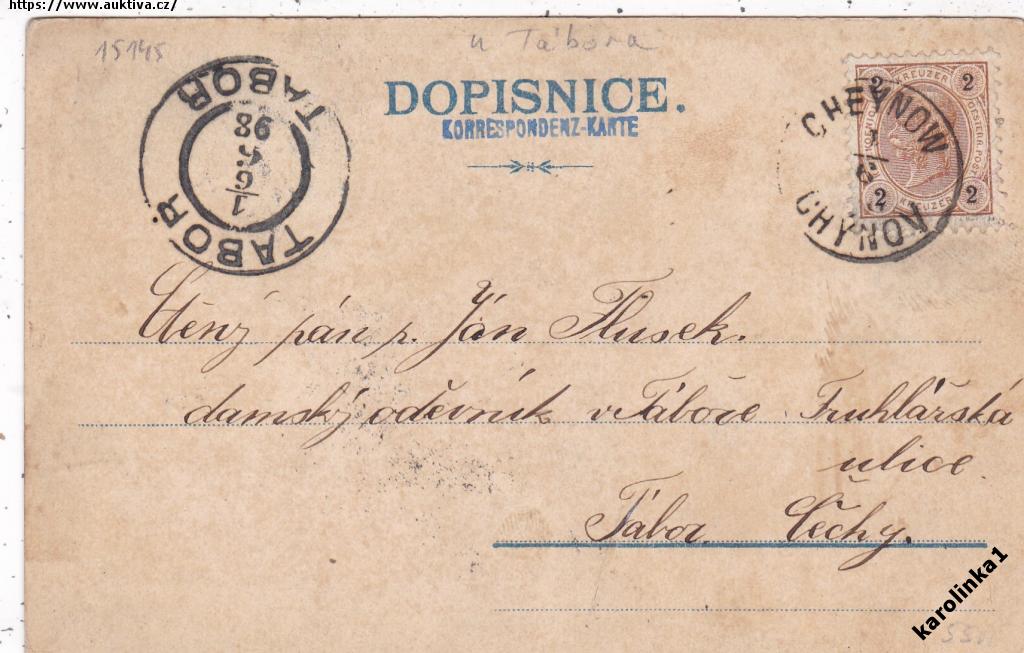 https://www.auktiva.cz/
15145
u Tábora
DOPISNICE.
KORRESPONDENZ-KARTE
TABOR TABOR
98
1/6
CHEYNOW
CHÝNOV
2 KREUZER 2
2 KREUZER 2
Ctěný pán p. Ján Flusek.
damský oděvník v Táboře Truhlářská
ulice
Tábor. Čechy.
karolinka1